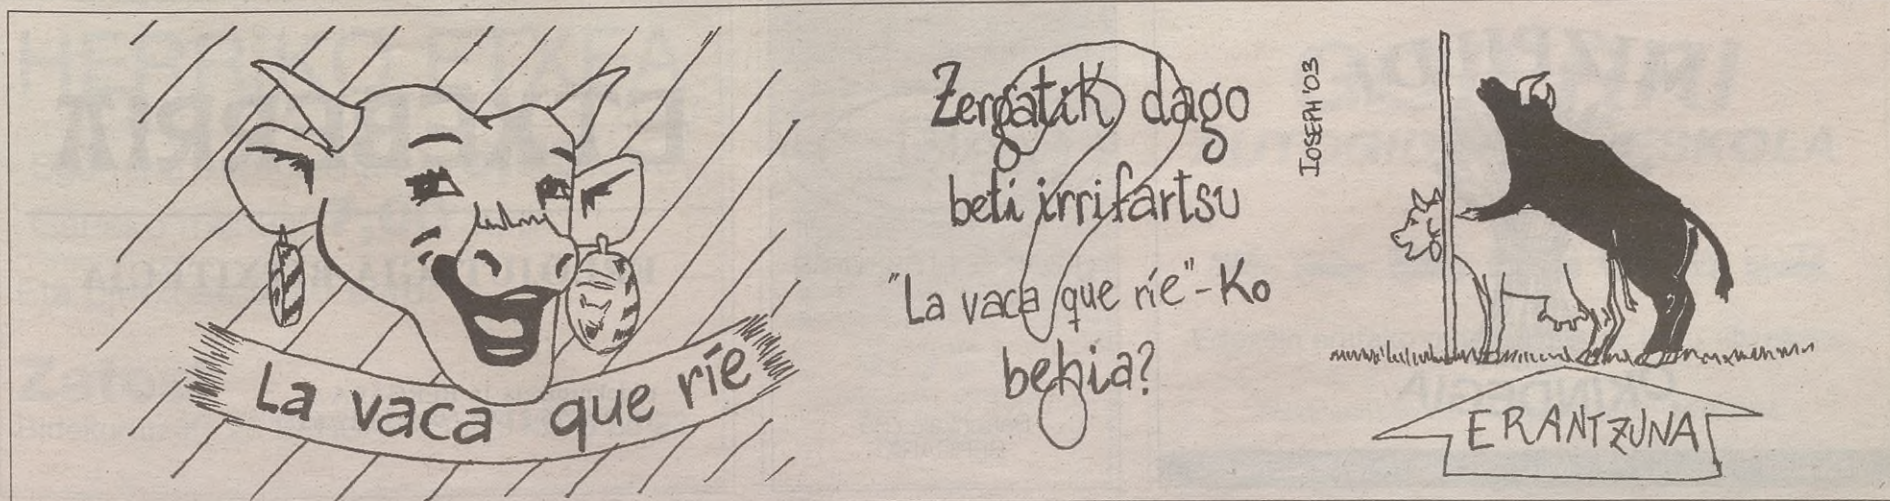 La vaca que ríe
Zergatik dago
beti irrifartsu
"La vaca que ríe"-Ko
behia?
IOSEPH '03
ERANTZUNA